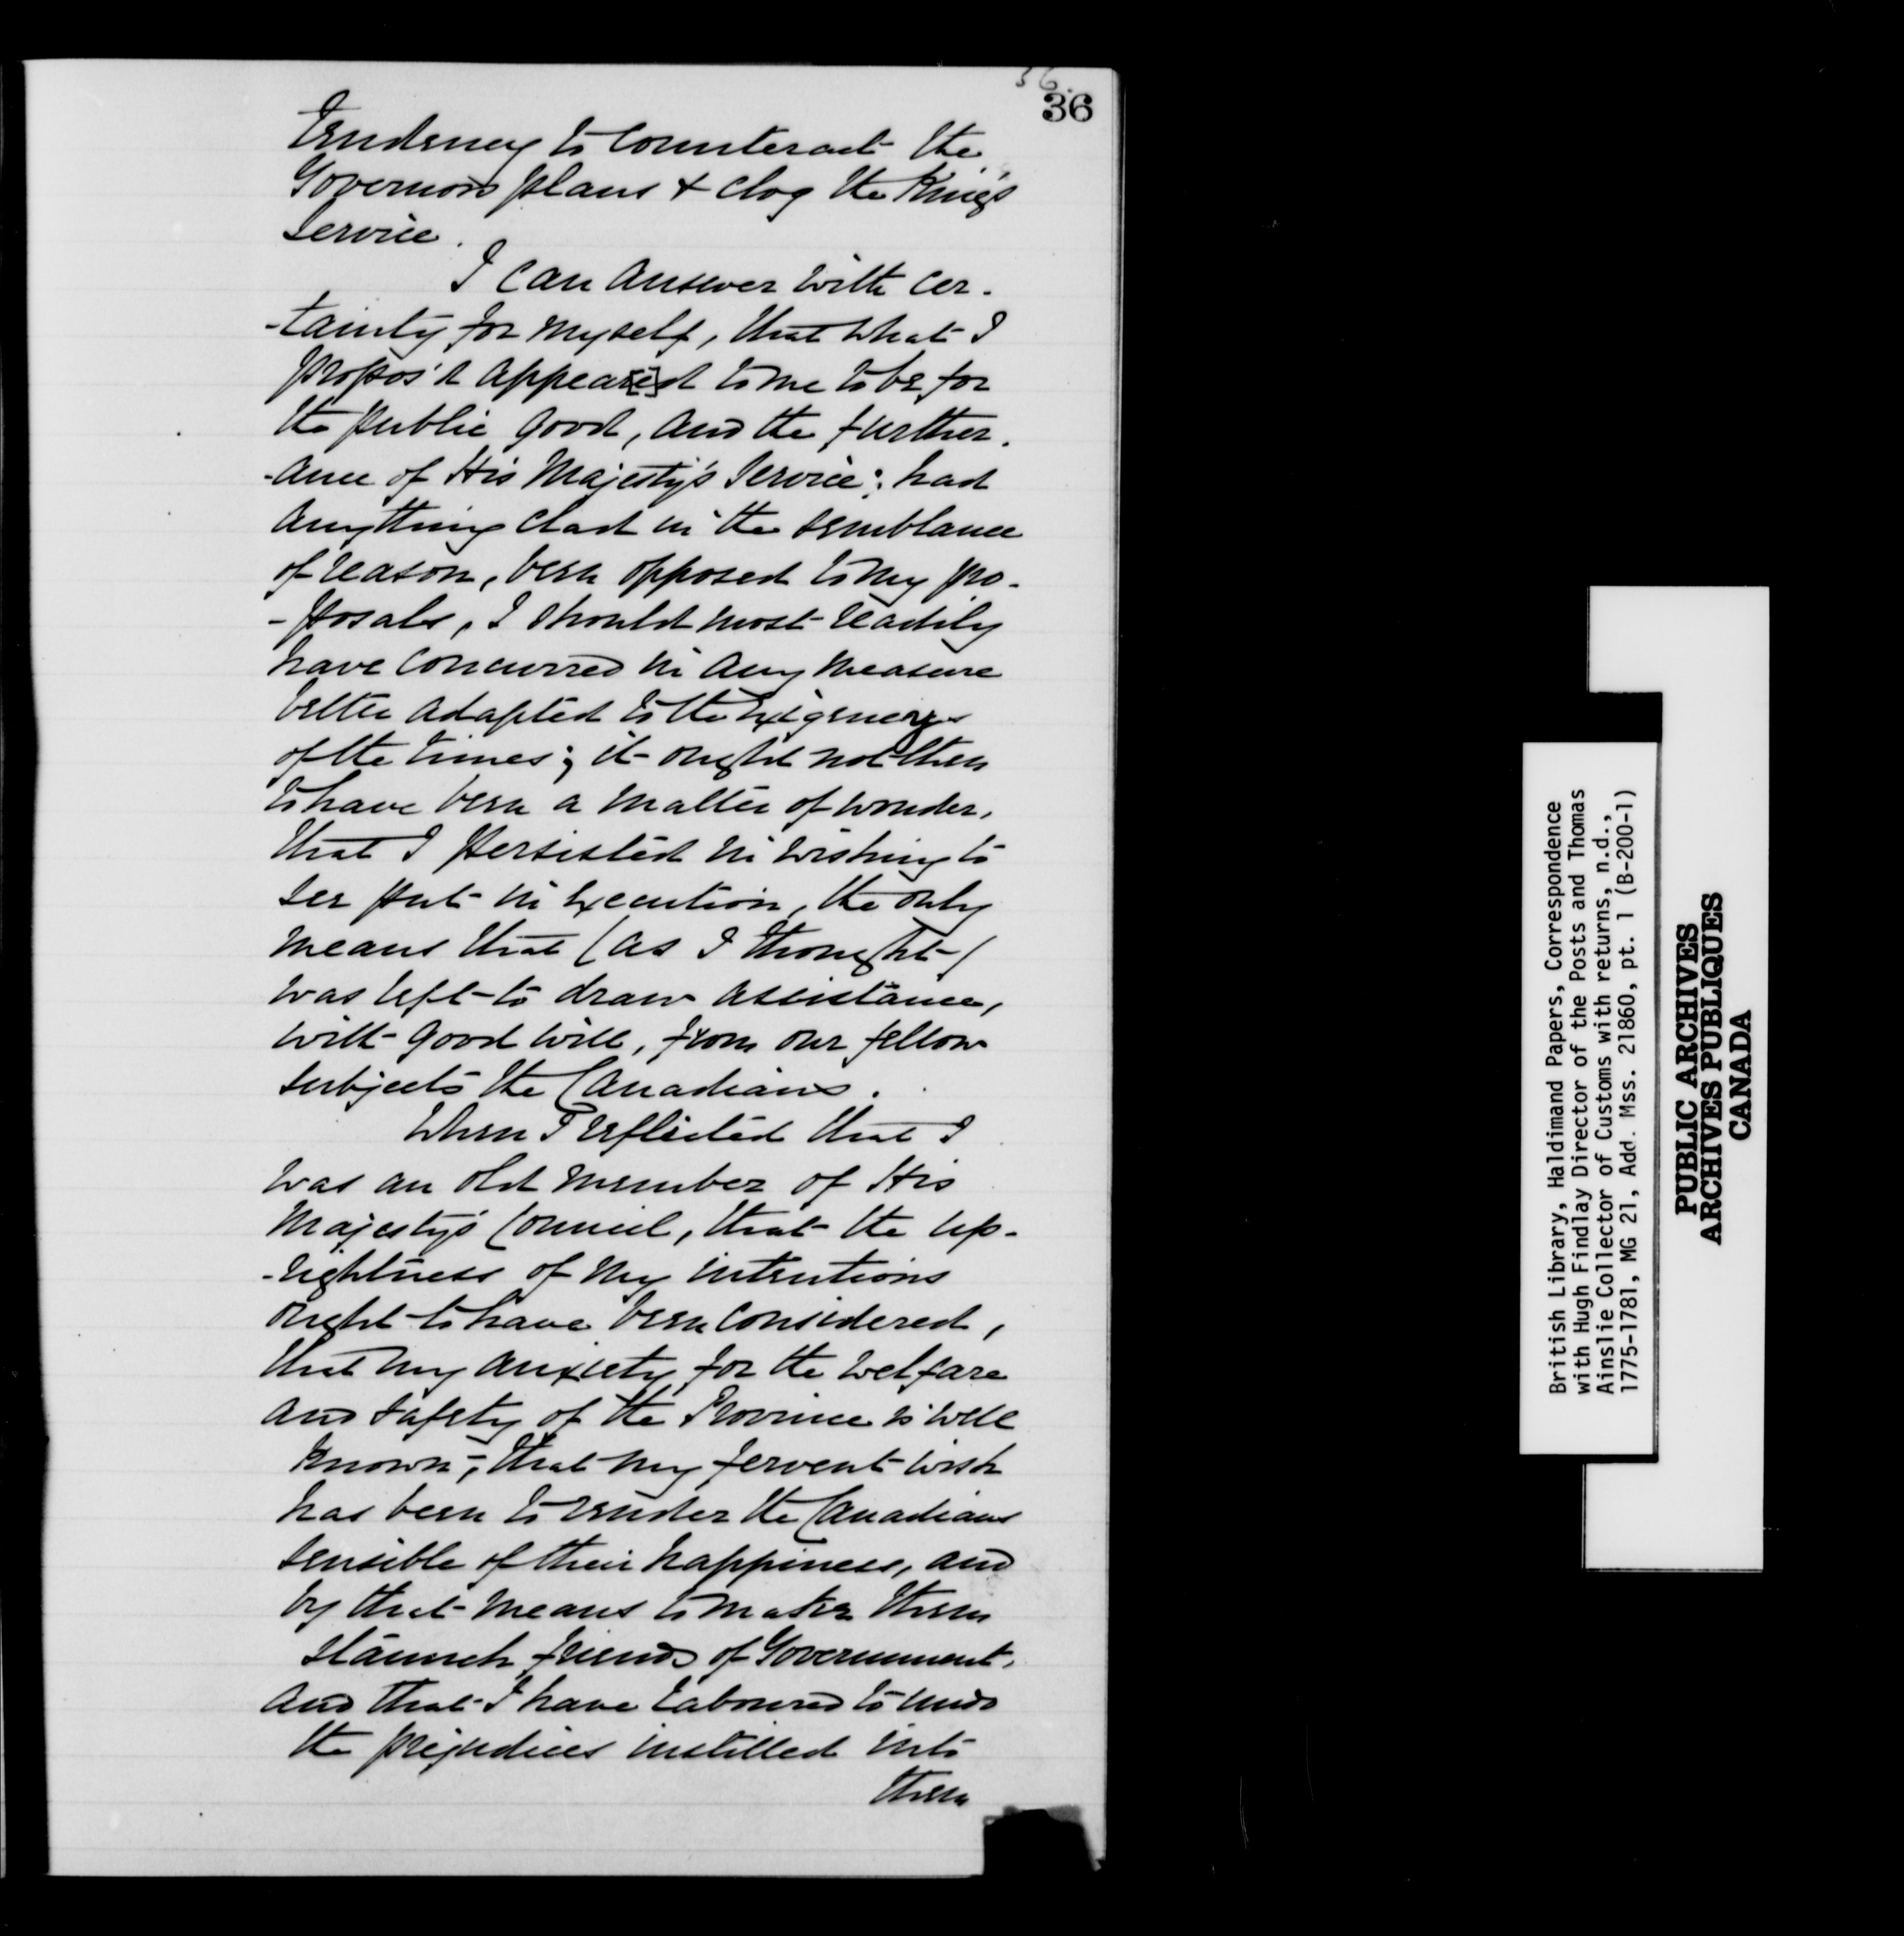 56.
36
Tendency to Counteract the
Governors plans & clog the King's
Service.
I can answer with cer-
-tainty for myself, that what I
propos'd appear[e]d to me to be for
the public good, and the further-
-ance of His Majesty's Service; had
anything clad in the semblance
of reason, been opposed to my pro-
-posals, I should most readily
have concurred in any measure
better adapted to the Exigencys
of the times; it ought not then
to have been a matter of wonder,
that I persisted in wishing to
see put in execution, the only
means that (as I thought)
was left to draw assistance,
with good will, from our fellow
subjects the Canadians.
When I reflected that I
was an old member of His
Majesty's Council, that the up-
-rightness of my intentions
ought to have been considered,
that my anxiety for the welfare
and safety of the Province is well
known; that my fervent wish
has been to render the Canadians
sensible of their happiness, and
by that means to make them
staunch friends of Government,
and that I have laboured to undo
the prejudices instilled into
them
British Library, Haldimand Papers, Correspondence
with Hugh Findlay Director of the Posts and Thomas
Ainslie Collector of Customs with returns, n.d.,
1775-1781, MG 21, Add. Mss. 21860, pt. 1 (B-200-1)
PUBLIC ARCHIVES
ARCHIVES PUBLIQUES
CANADA